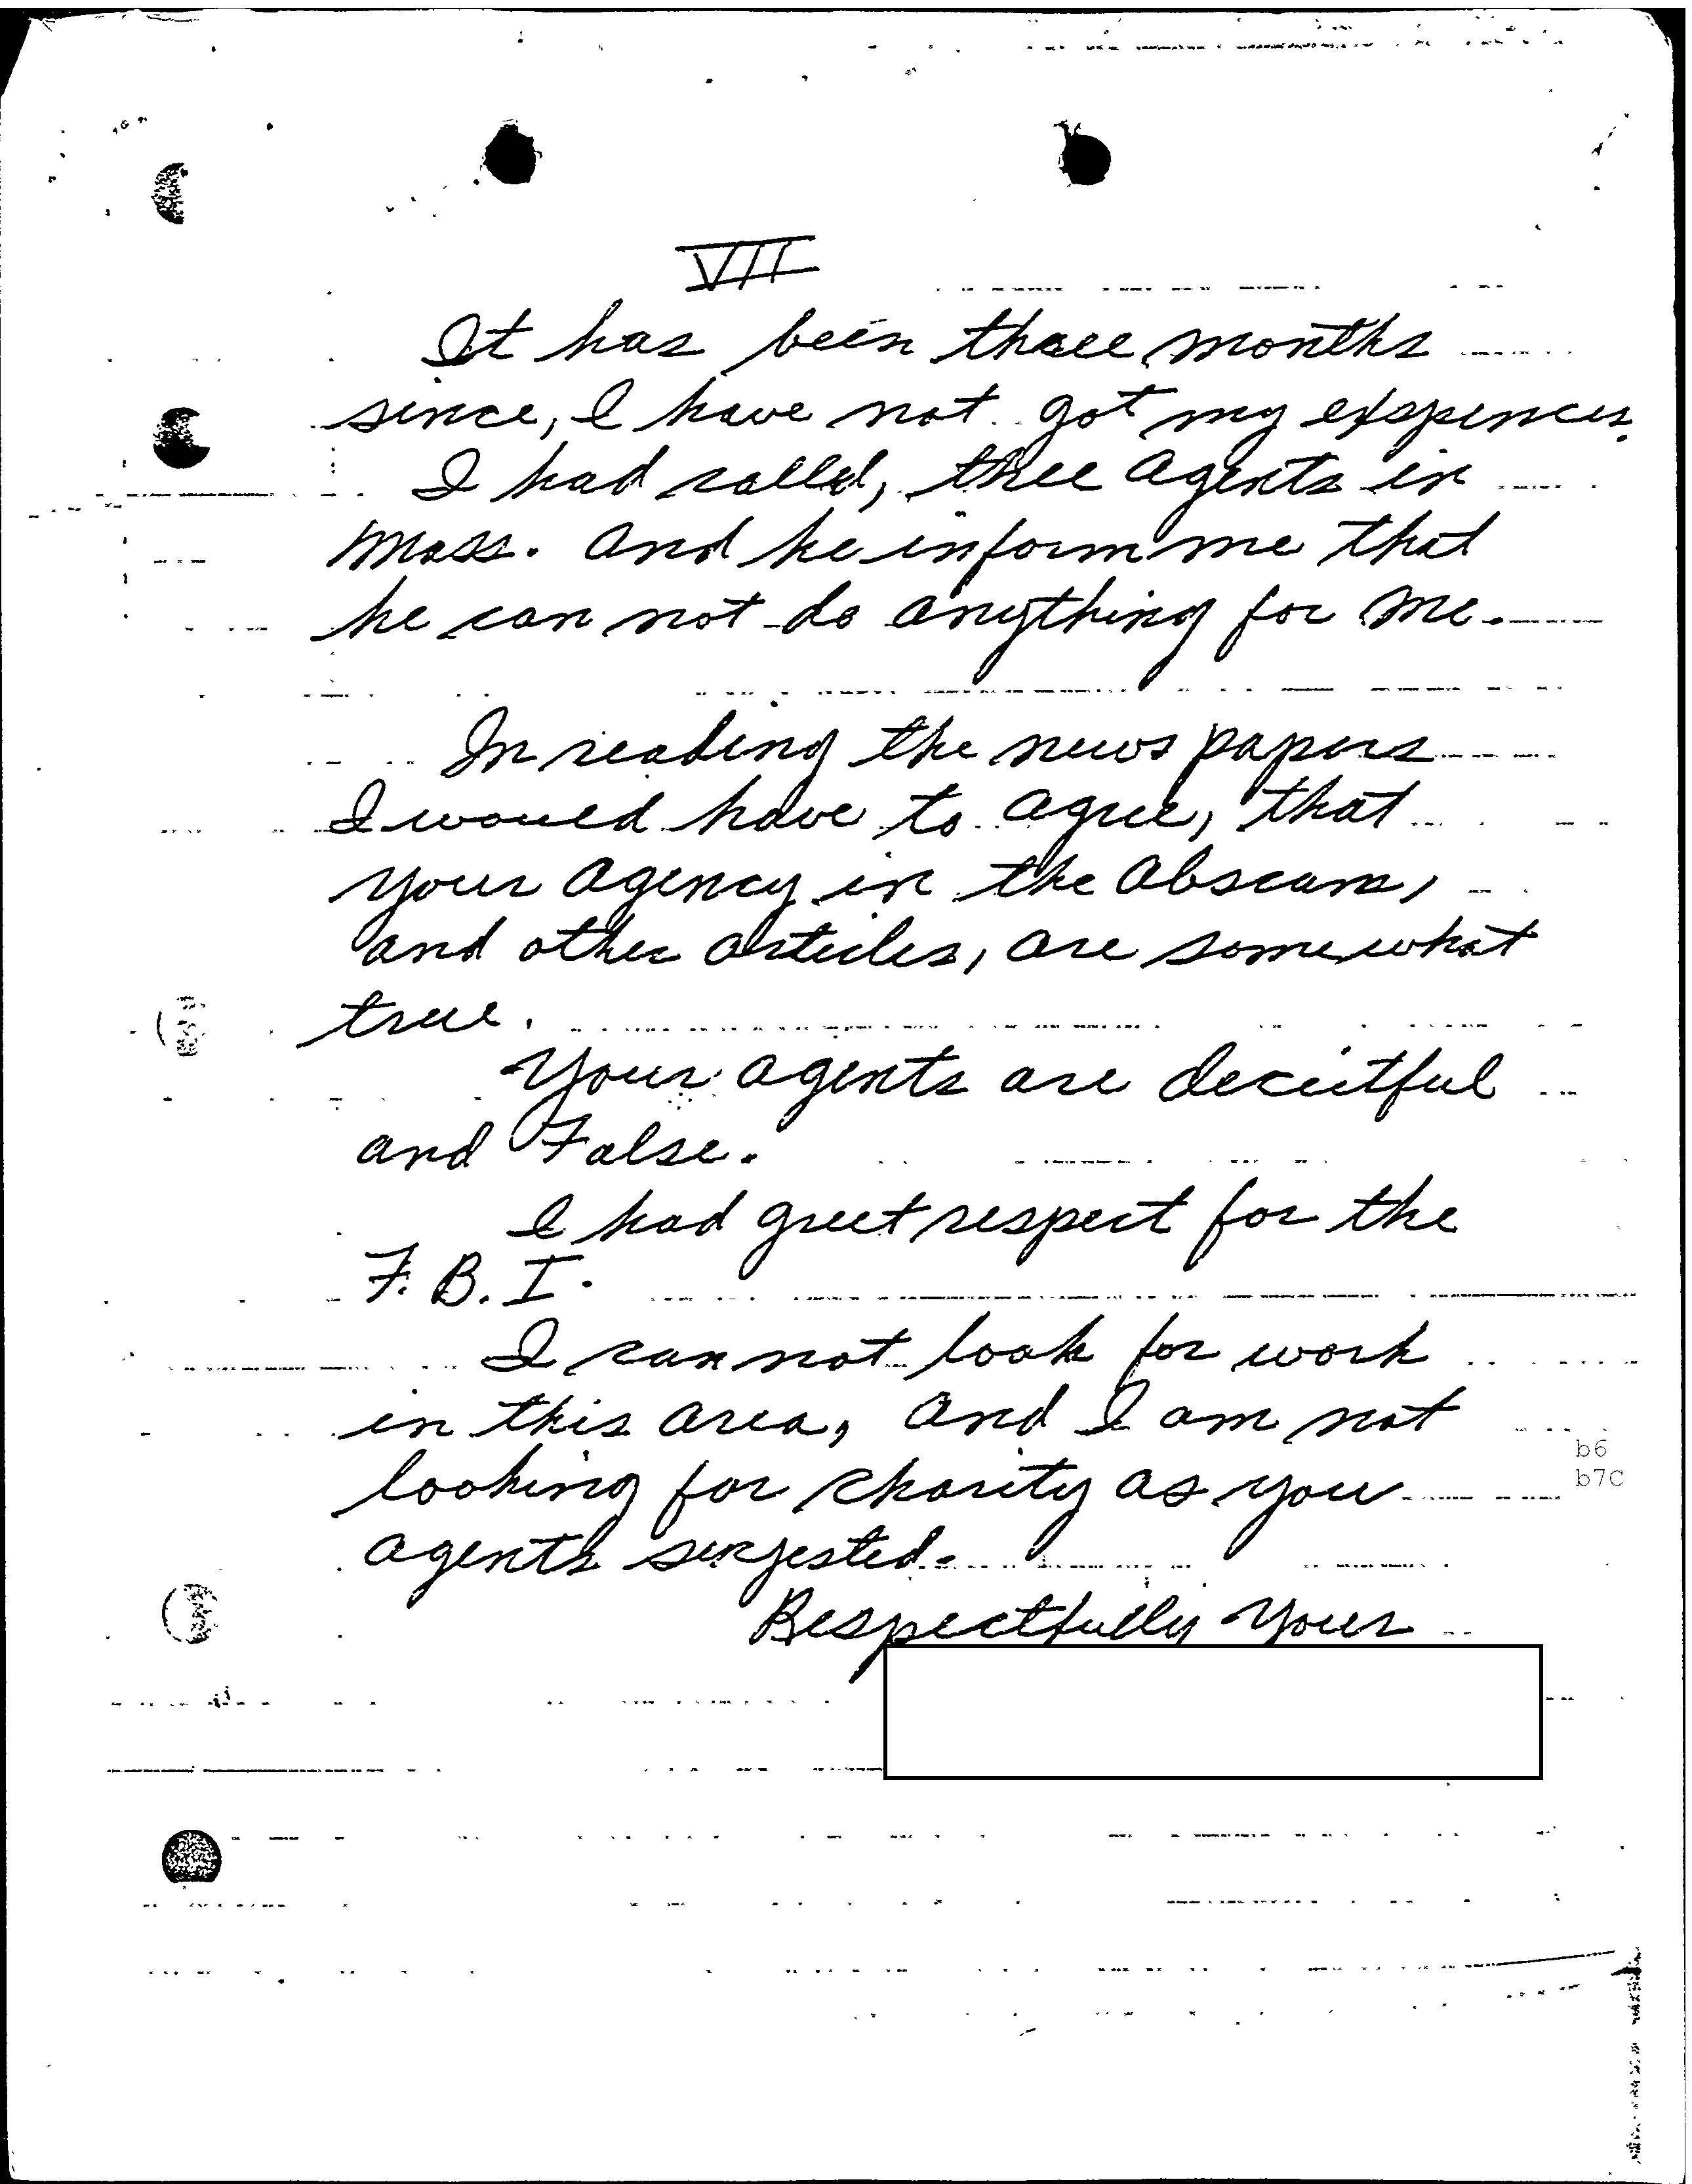 VII
It has been three months
since, I have not got my expences.
I had called, thee agents in
Mass. and he inform me that
he can not do anything for me.
In reading the news papers
I would have to agree, that
your agency in the Abscam,
and other articles, are somewhat
true.
Your agents are deceitful
and False.
I had greet respect for the
F. B. I.
I can not look for work
in this area, and I am not
b6
looking for charity as you
b7C
agents sugested.
Respectfully Your